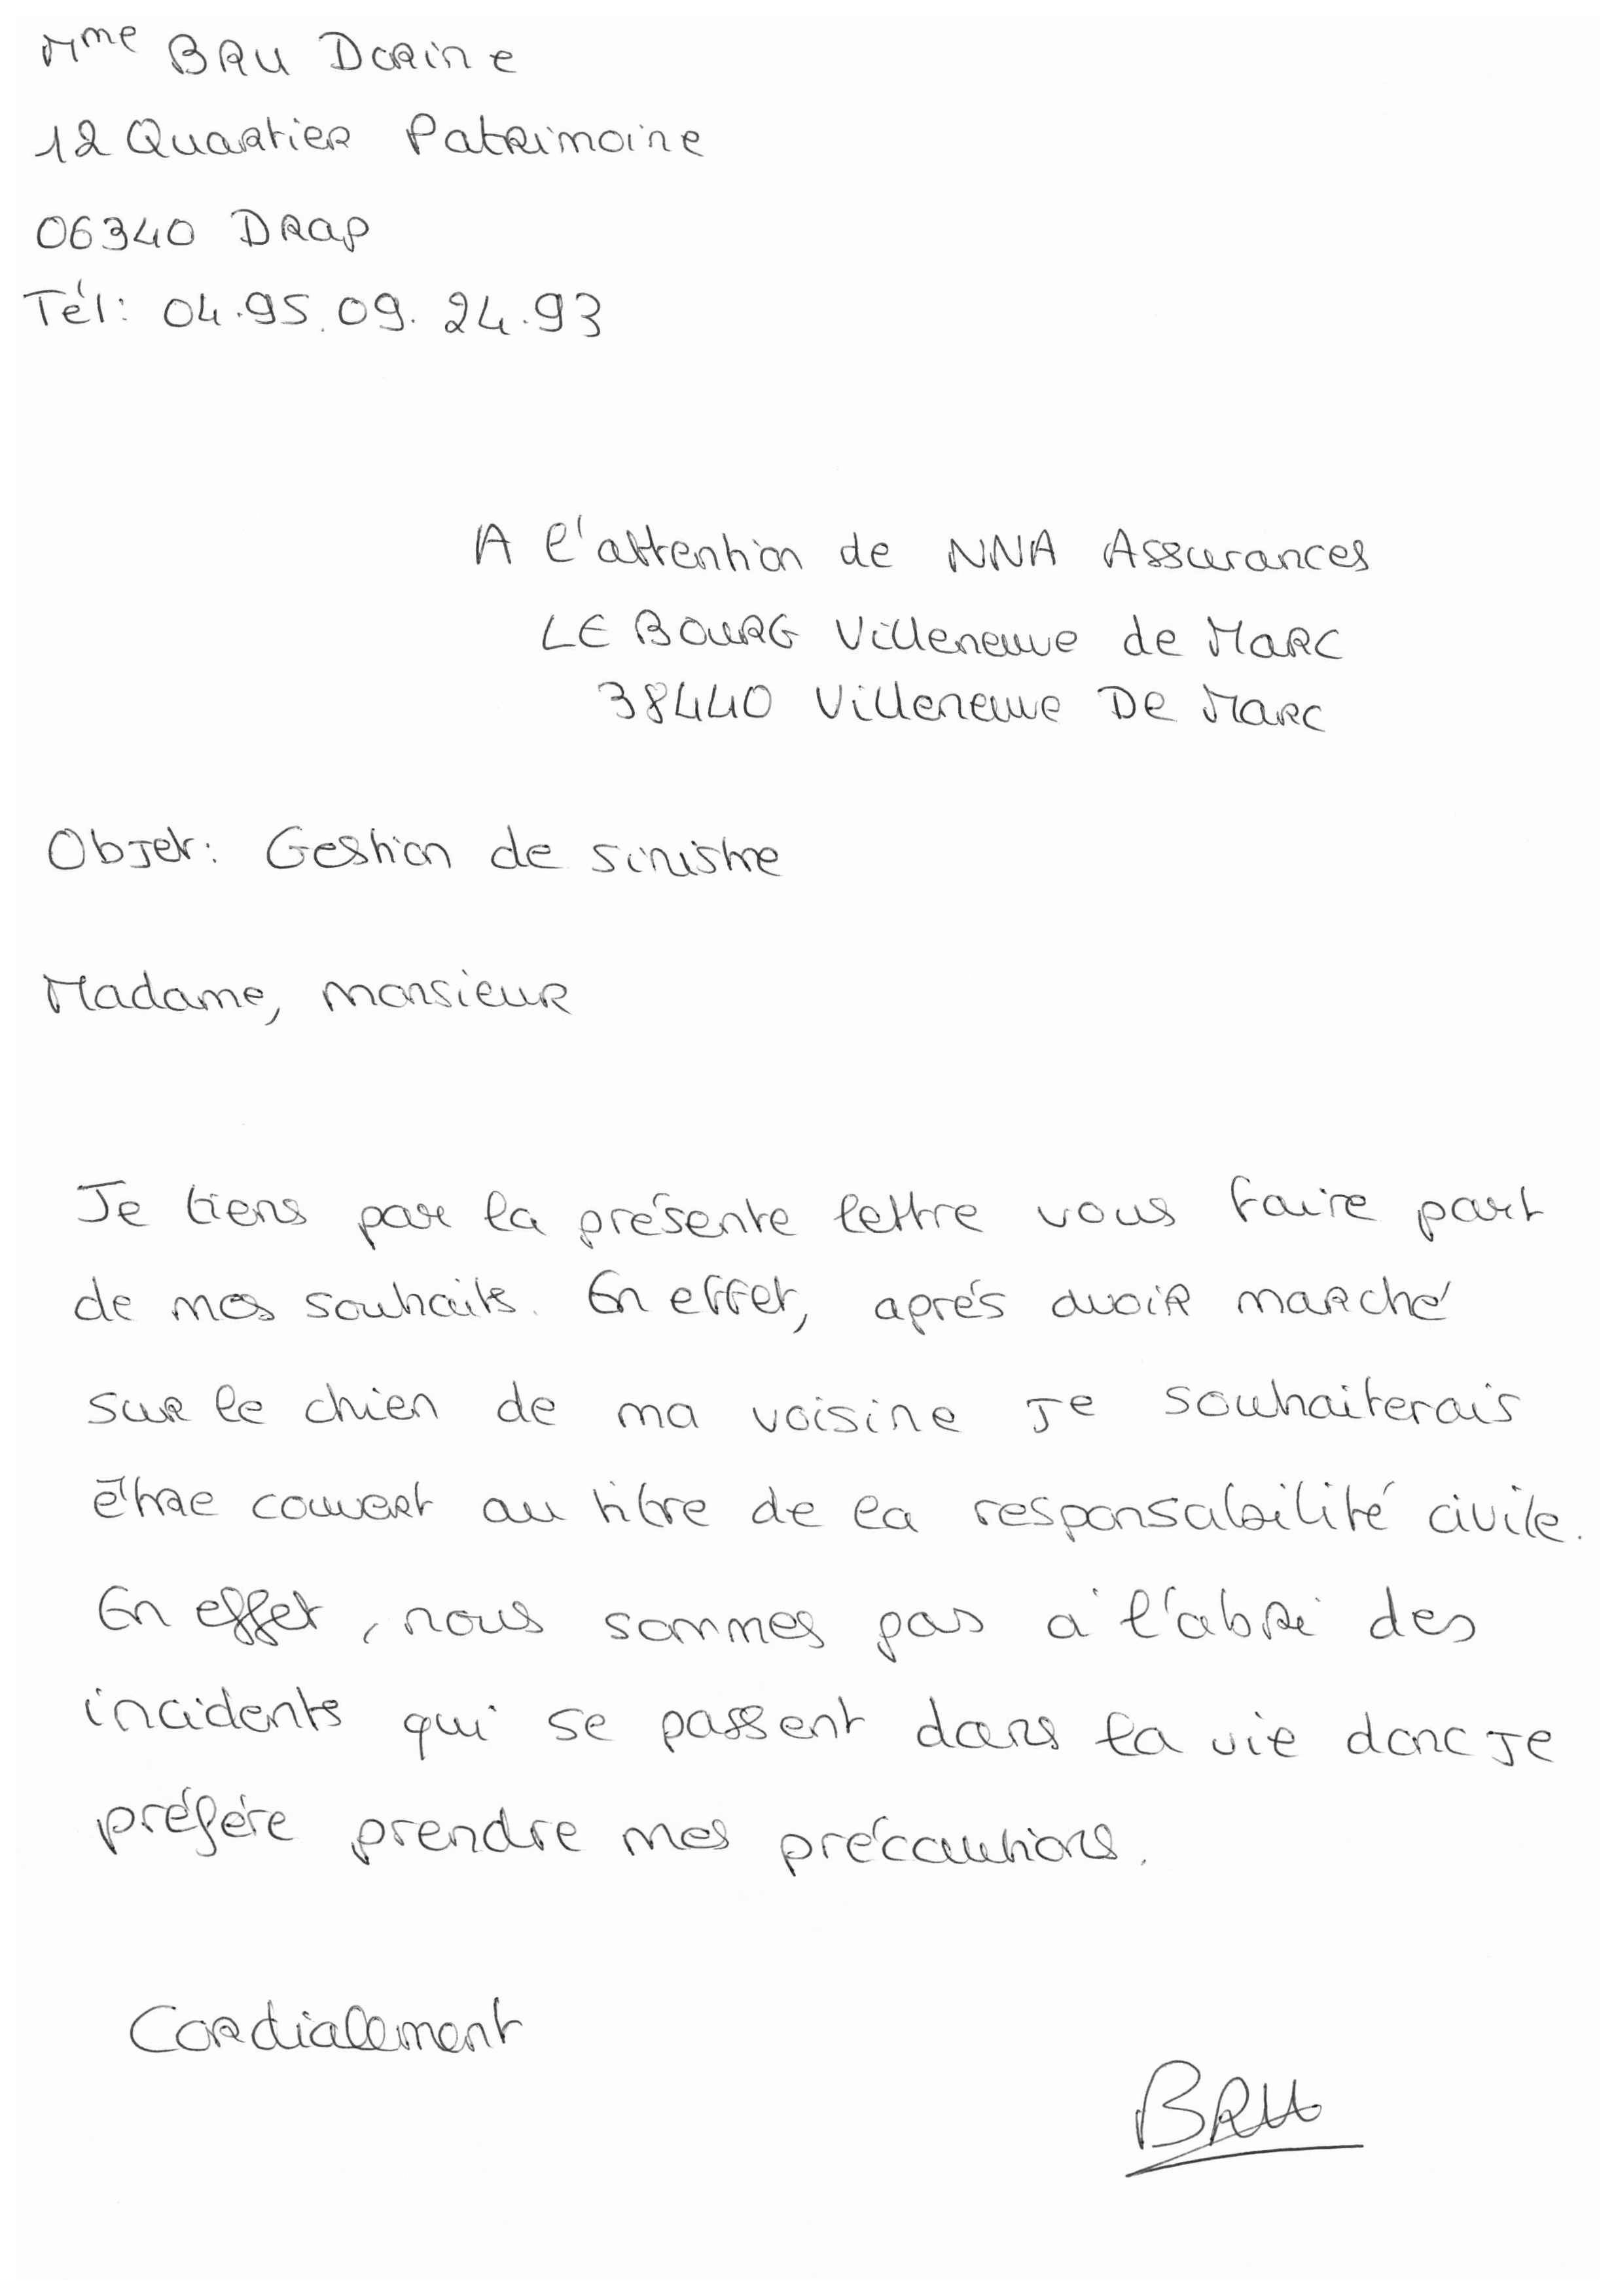 Mme BRU Dorine
12 Quartier Patrimoine
06340 DRAP
Tél: 04.95.09.24.93
A l'attention de NNA Assurances
LE BOURG Villeneuve de MARC
38440 Villeneuve De Marc
Objet: Gestion de sinistre
Madame, monsieur
Je tiens par la présente lettre vous faire part
de mes souhaits. En effet, après avoir marché
sur le chien de ma voisine je souhaiterais
être couvert au titre de la responsabilité civile.
En effet, nous sommes pas à l'abri des
incidents qui se passent dans la vie donc je
préfère prendre mes précautions.
Cordialement
BRU